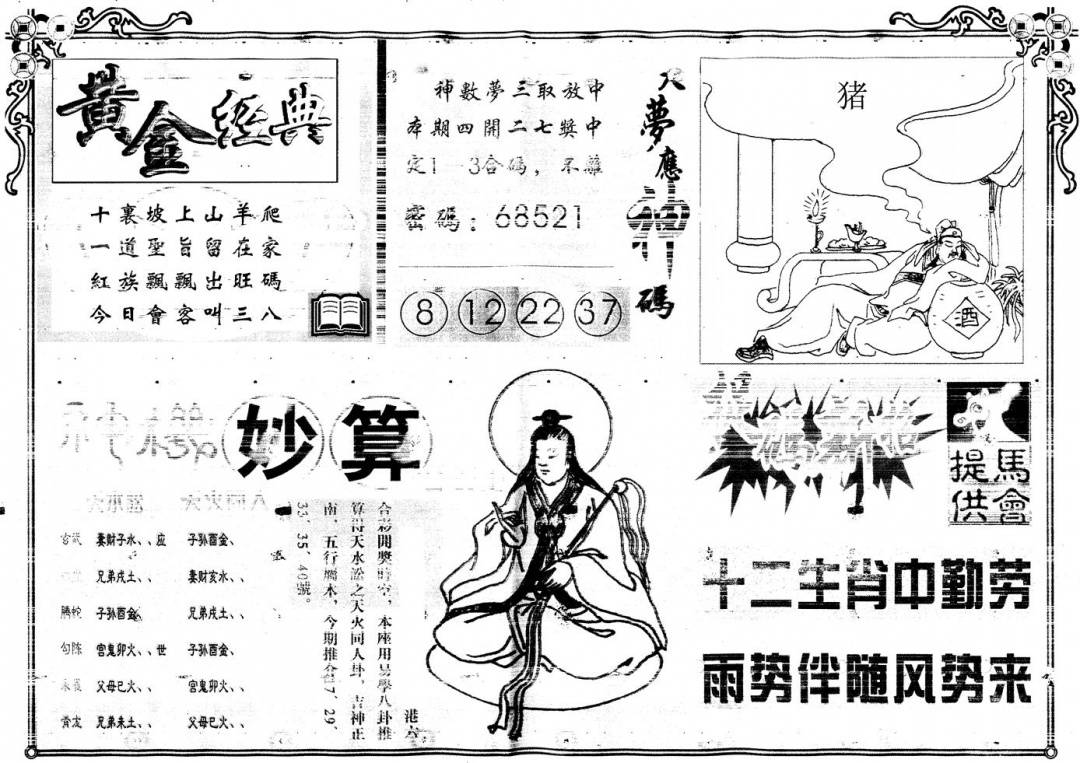 黄金經典
十裏坡上山羊爬
一道聖旨留在家
紅族飄飄出旺碼
今日會客叫三八
神數夢三取放中
本期四開二七獎中
定1—3合碼，不離
密碼：68521
8 12 22 37
大夢應神碼
猪
酒
妙算
天水訟 天火同人
玄武 妻財子水、、应 子孙酉金、
兄弟戌土、、 妻财亥水、、
腾蛇 子孙酉金、 兄弟戌土、、
勾陈 官鬼卯火、、世 子孙酉金、
朱雀 父母巳火、、 官鬼卯火、、
兄弟未土、、 父母巳火、、
港六
合彩開獎時空，本座用易學八卦推
算得天水訟之天火同人卦，吉神正
南，五行屬木，今期推介17、29、
33、35、40號。
馬會
提供
十二生肖中勤劳
雨势伴随风势来